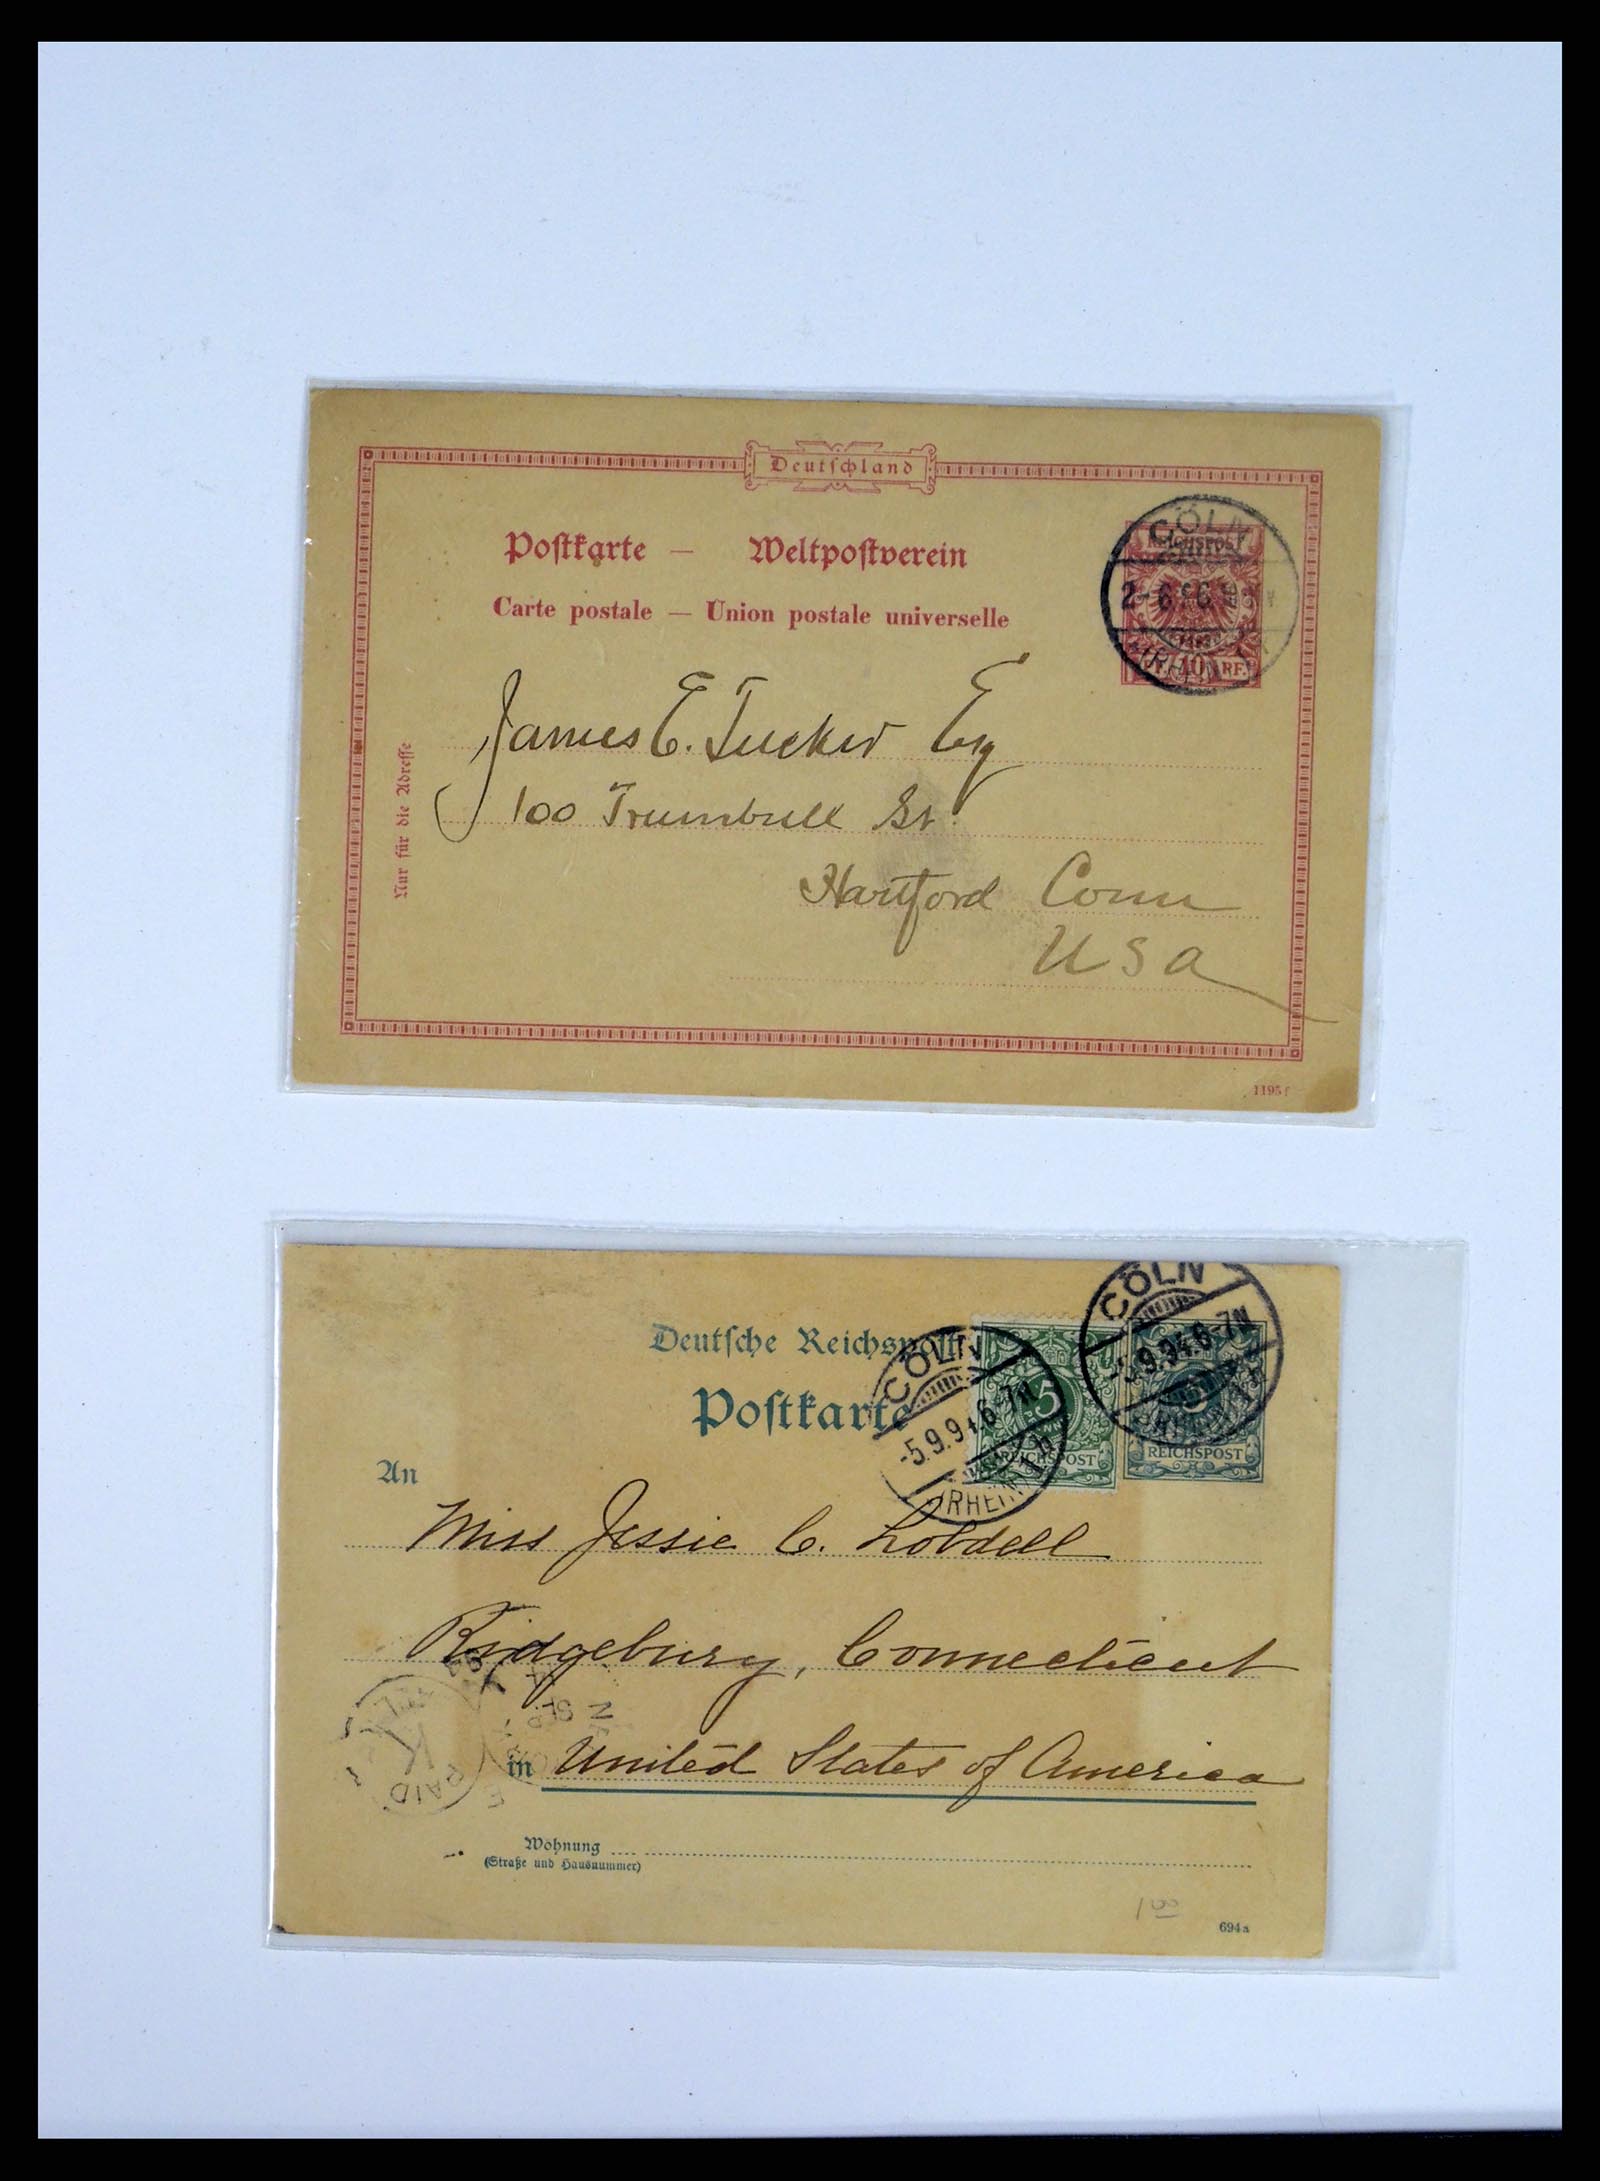 Deutschland
Postkarte — Weltpostverein
Carte postale — Union postale universelle
CÖLN
REICHSPOST
2-6
PF. 10 PF.
Nur für die Adresse
James E. Tucker Esq
100 Trumbull St.
Hartford Conn
USA
1195f
Deutsche Reichspost
Postkarte
CÖLN
-5.9.94.6-7N
(RHEIN)
5
REICHSPOST
CÖLN
-5.9.94.6-7N
(RHEIN)
5
REICHSPOST
An
Miss Jessie C. Lobdell
Ridgebury, Connecticut
in United States of America
PAID
K
SEP
Wohnung
(Straße und Hausnummer)
1 00
694a